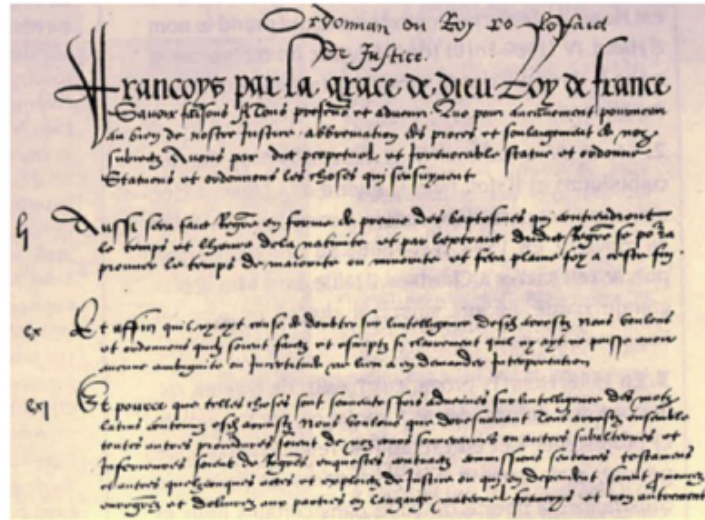 Ordonnan du Roy
De Justice.
Francoys par la grace de dieu Roy de france
Savoir faisons A tous presens et advenir. Que pour aucunement pourveoir
au bien de nostre Justice. abbreviation des proces et soulagement de noz
subiectz Avons par edict perpetuel et irrevocable statue et ordonne
Statuons et ordonnons les choses qui sensuyvent.
Aussi sera faict Regre en forme de preuve des baptesmes qui contiendront
le temps et lheure de la nativite et par lextraict dudict Regre se porra
prouver le temps de majorite ou minorite et fera plaine foy a ceste fin.
cx Et affin quil ny ayt cause de doubter sur lintelligence desdz arrestz Nous voulons
et ordonnons quilz soient faictz et escriptz si clairement quil ny ayt ne puisse avoir
aucune ambiguite ou incertitude ne lieu a en demander Interpretation.
cxj Et pource que telles choses sont souventesfois advenues sur lintelligence des motz
latins contenuz esdz arrestz Nous voulons que doresnavant Tous arrestz ensemble
toutes autres procedures soient de noz cours souveraines ou autres subalternes et
Inferieures soient de Regres enquestes contractz commissions sentences testamens
et autres quelzconques actes et exploictz de Justice ou qui en dependent soient prononcez
enregrez et delivrez aux parties en langage maternel francoys et non autrement